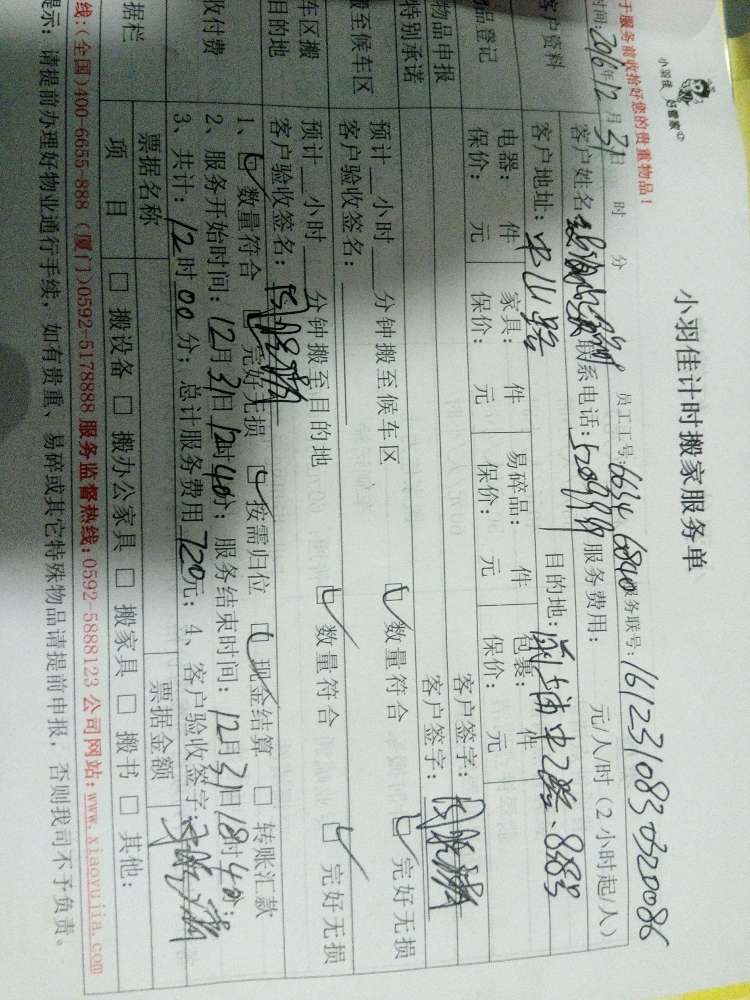 小羽佳 好管家
于服务前收拾好您的贵重物品！
小羽佳计时搬家服务单
时间:2016年12月31日 时 分 员工工号:6634 6840 服务联号:161231083
客户资料 客户姓名: 联系电话: 服务费用: 元/人/时(2小时起/人)
客户地址:中山路 目的地:
品登记 电器: 件 家具: 件 易碎品: 件 包裹: 件
物品申报 保价: 元 保价: 元 保价: 元 保价: 元
特别承诺 客户签字:
搬至候车区 预计 小时 分钟搬至候车区 数量符合 完好无损
客户验收签名: 客户签字:
车区搬 预计 小时 分钟搬至目的地 数量符合 完好无损
目的地 客户验收签名:
收付费 1、 数量符合 完好无损 按需归位 现金结算 转账汇款
2、服务开始时间:12月31日12时40分; 服务结束时间:12月31日18时40分;
3、共计:12时00分; 总计服务费用720元; 4、客户验收签字:
据栏 票据名称 票据金额
项目 搬设备 搬办公家具 搬家具 搬书 其他:
线:(全国)400-6655-888 (厦门)0592-5178888 服务监督热线:0592-5888123 公司网站:www.xiaoyujia.com
提示: 请提前办理好物业通行手续，如有贵重、易碎或其它特殊物品请提前申报，否则我司不予负责。